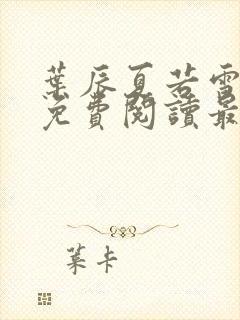 葉辰夏若雪
免費閱讀最
葉卡